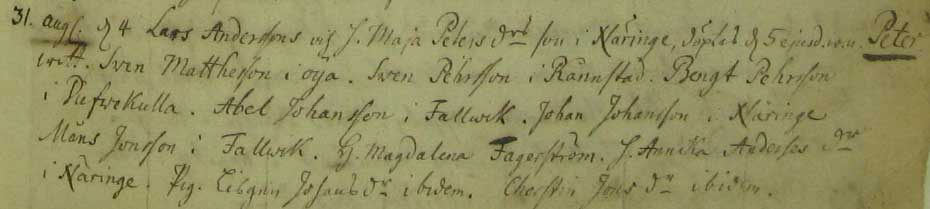 31. Aug. d 4 Lars Anderssons och H. Maja Peters drs son i Näringe, döptes d 5 ejusd. n.n. Peter
witt. Sven Matthesson i öija. Swen Pehrsson i Rånnstad. Bengt Pehrsson
i Pufwekulla. Abel Johansson i Fallwik. Johan Johansson i Näringe
Måns Jonsson i Fallwik. H. Magdalena Fagerström. H. Annika Anderses dr
i Näringe. Pig. Johans dr ibidem. Cherstin Jons dr ibidem.